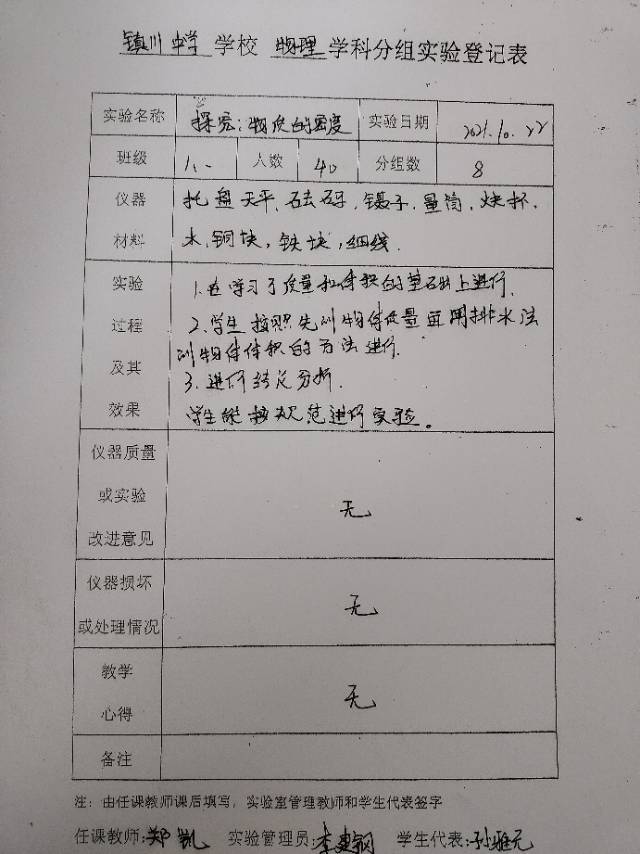 镇川中学 学校 物理 学科分组实验登记表
实验名称 探究:物质的密度 实验日期 2021.10.22
班级 人数 40 分组数 8
仪器 托盘天平、砝码、镊子、量筒、烧杯、
材料 水、铜块、铁块、细线.
实验 1.在学习了质量和体积的基础上进行.
过程 2.学生按照先测物体质量再用排水法
测物体体积的方法进行.
及其 3.进行结论分析.
效果 学生能按规范进行实验。
仪器质量
或实验 无
改进意见
仪器损坏 无
或处理情况
教学 无
心得
备注
注:由任课教师课后填写,实验室管理教师和学生代表签字
任课教师:郑凯 实验管理员:李建钢 学生代表:孙雅元